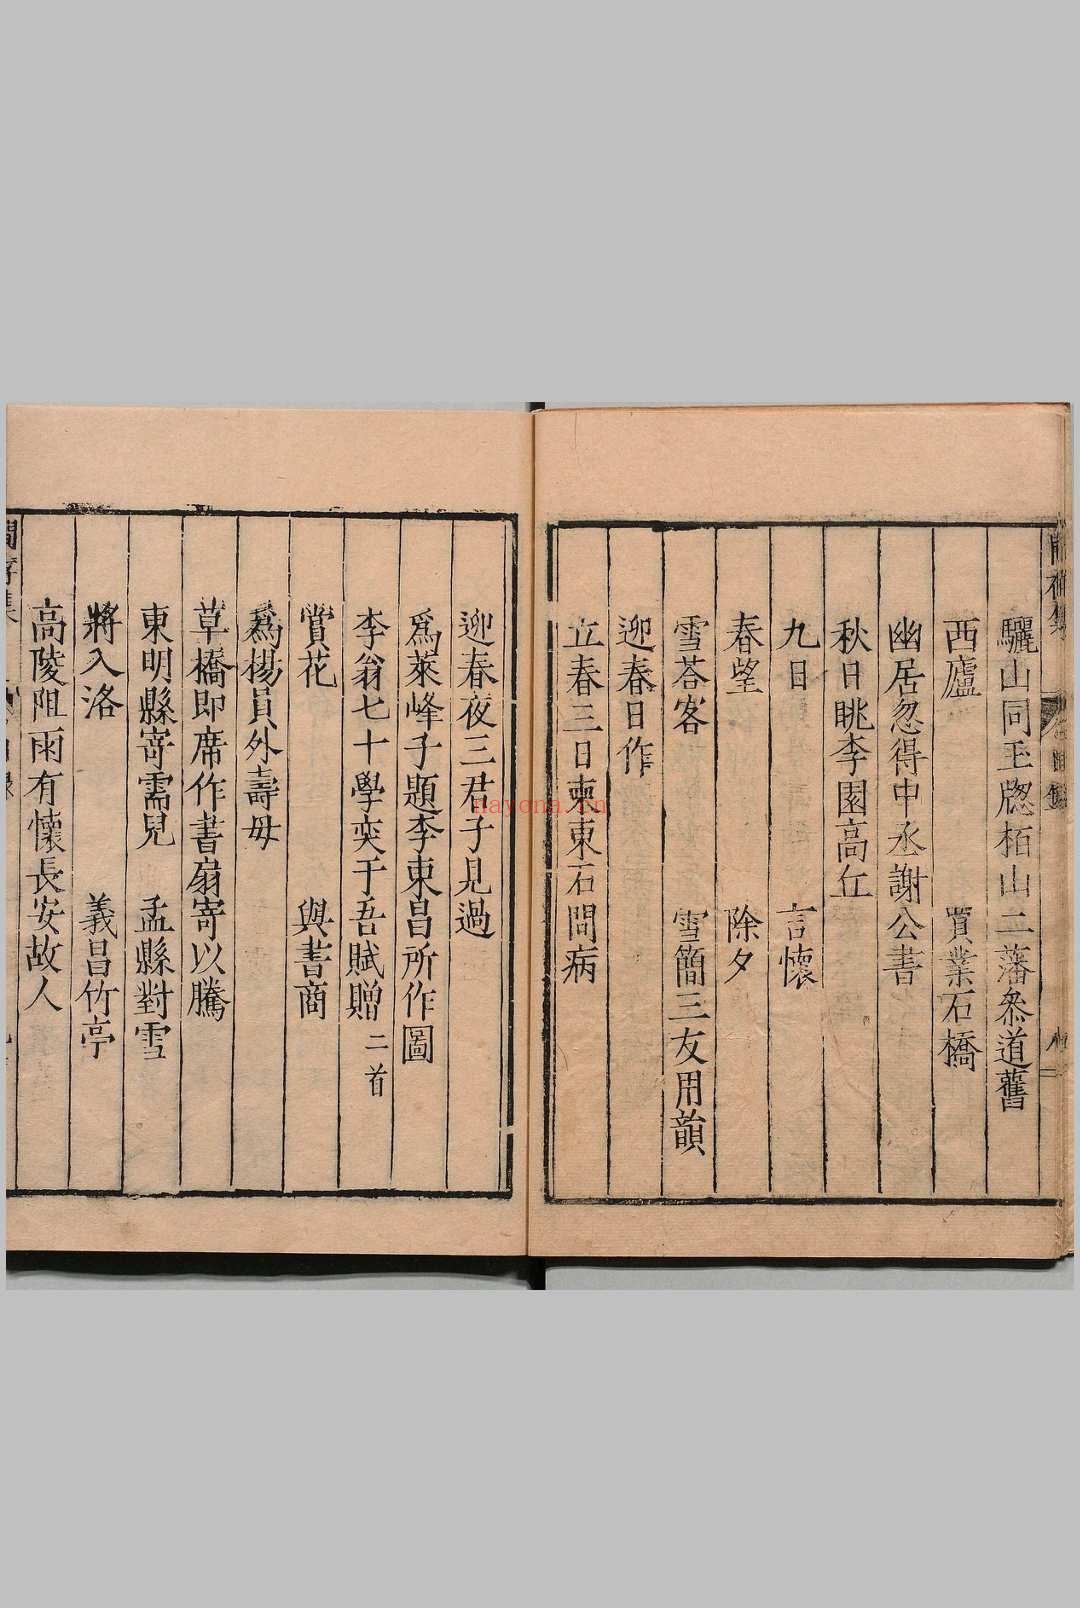 驪山同王牕栢山二藩叅道舊
西廬　賈業石橋
幽居忽得中丞謝公書
秋日眺李園高丘
九日　言懷
春望　除夕
雪荅客　雪簡三友用韻
迎春日作
立春三日柬東石問病
迎春夜三君子見過
爲萊峰子題李東昌所作圖
李翁七十學奕于吾賦贈二首
賞花　與書商
爲楊員外壽母
草橋即席作書扇寄以騰
東明縣寄需兒　孟縣對雪
將入洛　義昌竹亭
高陵阻雨有懷長安故人
nayona.cn